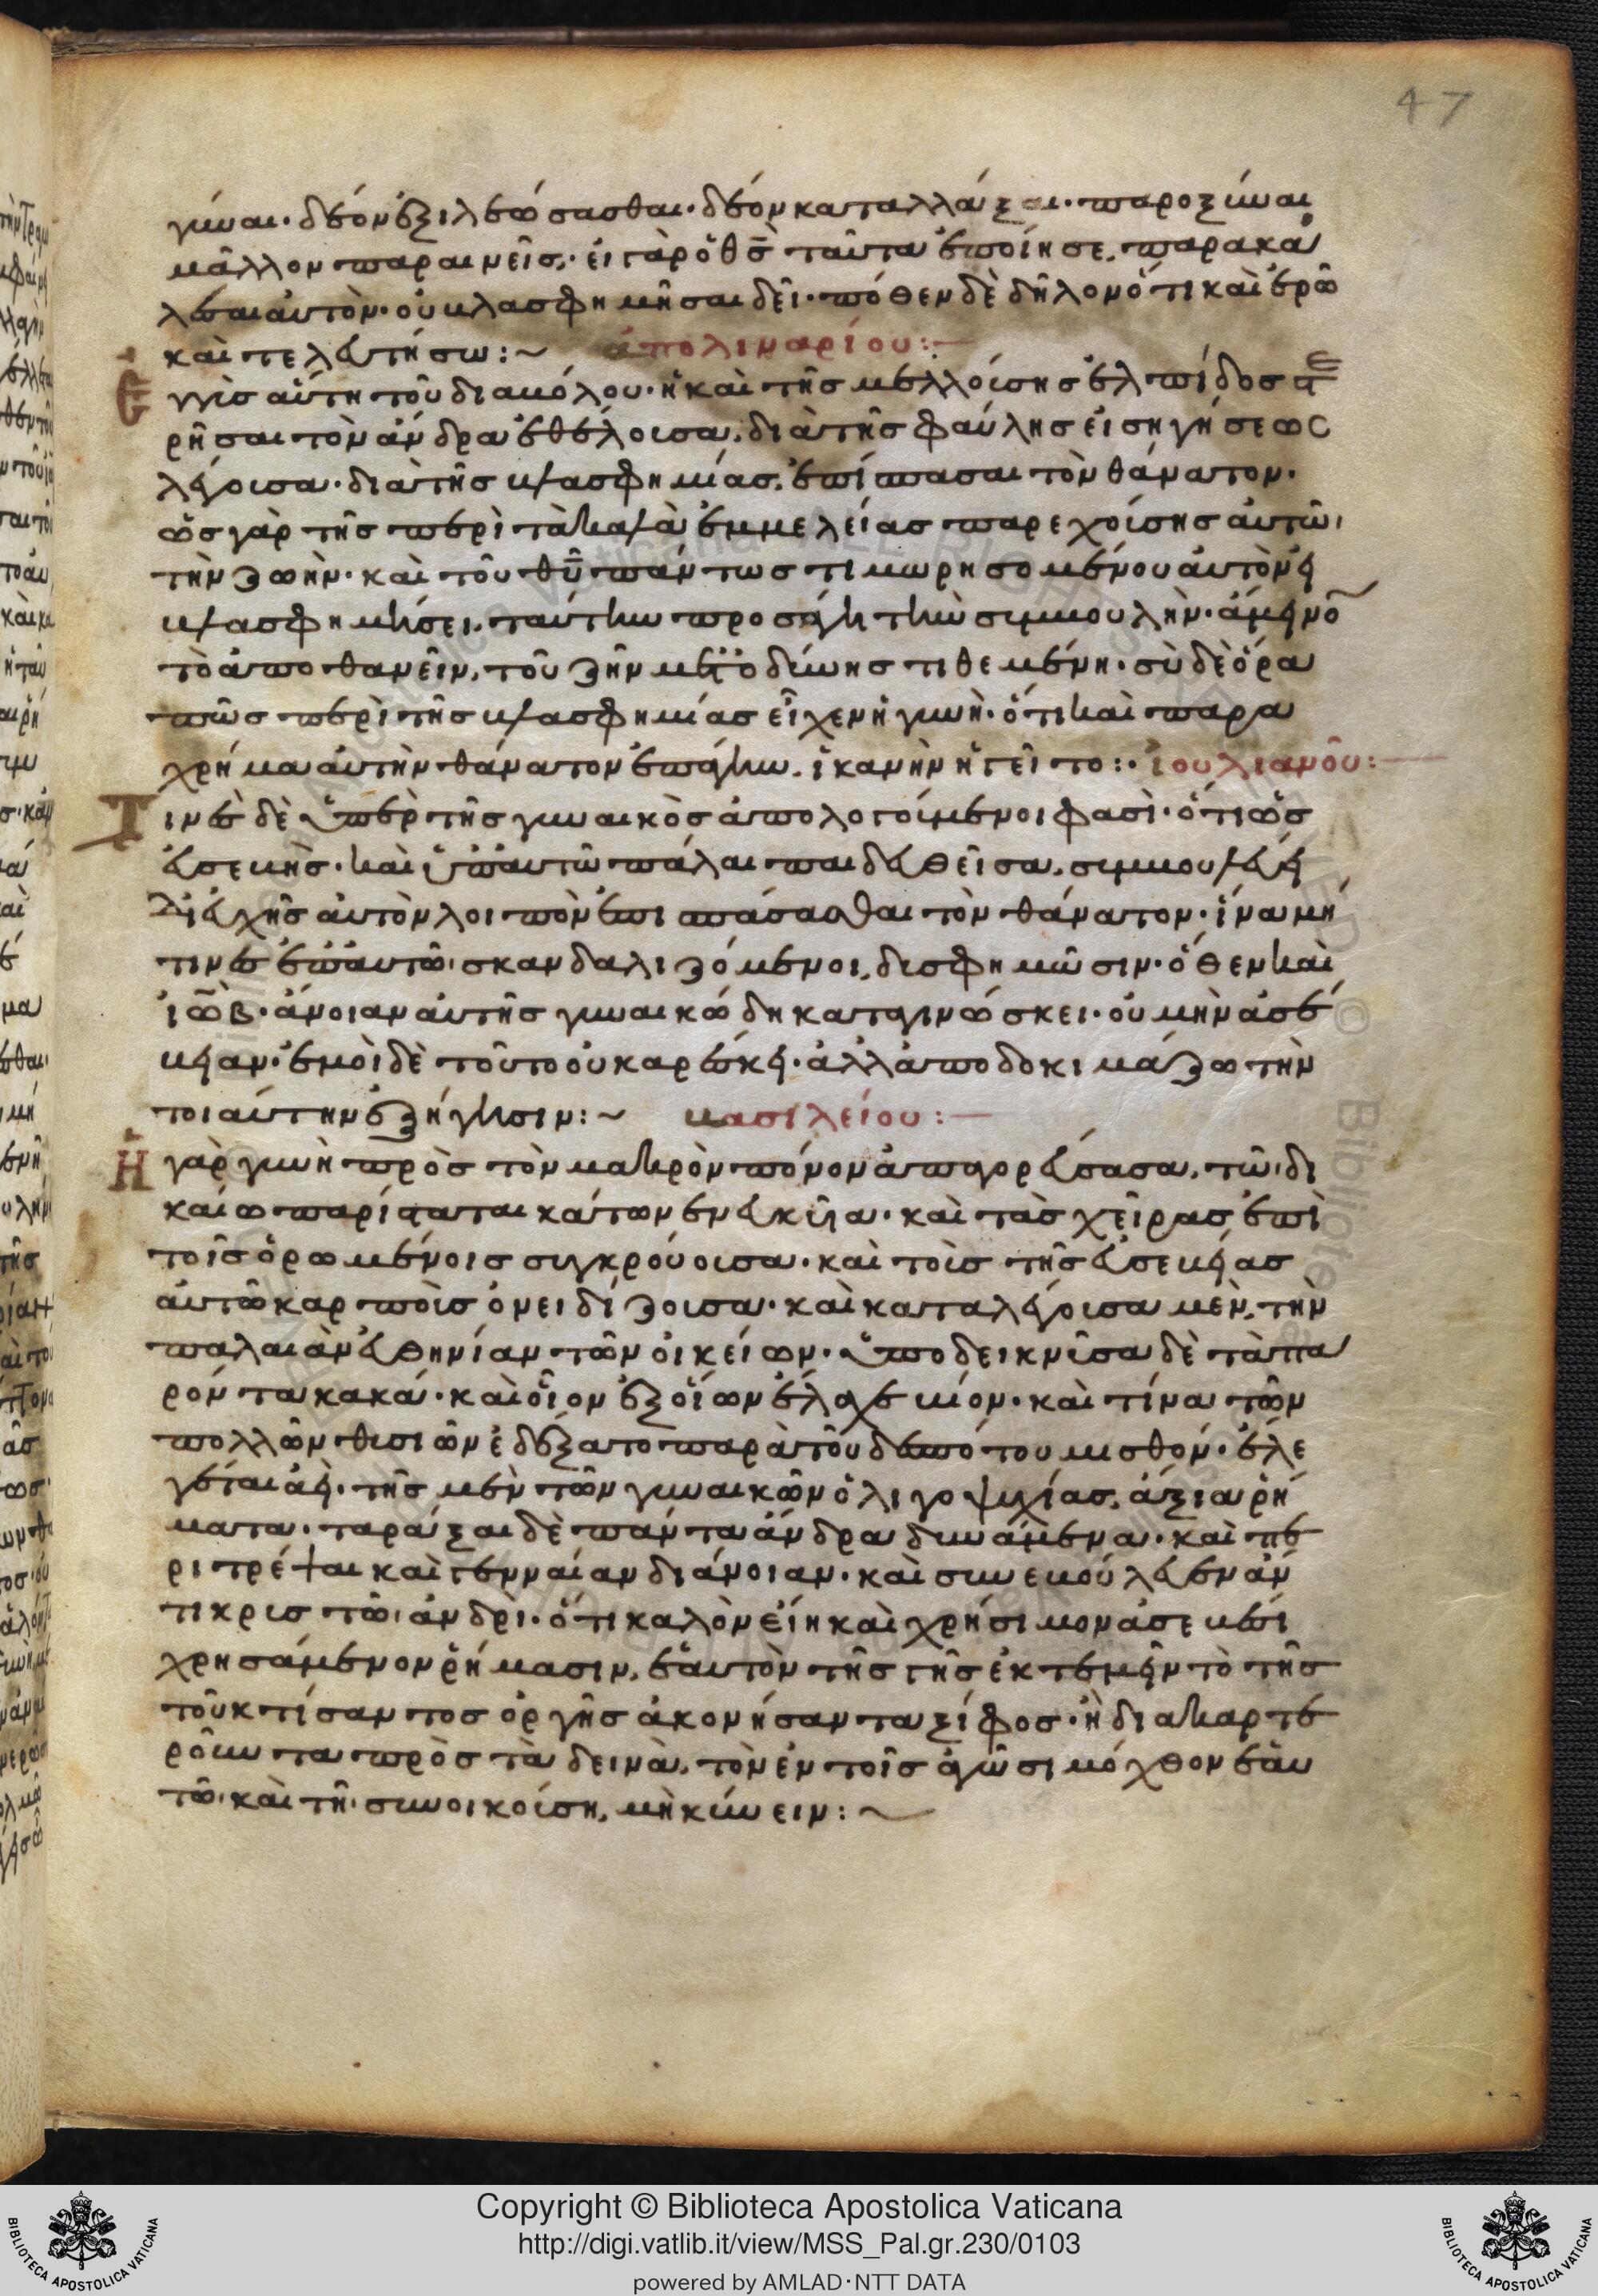 47
γύναι· δέον ἐξιλεώσασθαι· δέον καταλλάξαι· παροξύναι
μᾶλλον παραινεῖς· εἰ γὰρ ὁ θσ̄ ταῦτα ἐποίησε, παρακα
λέσαι αὐτὸν· οὐ βλασφημῆσαι δεῖ· πόθεν δὲ δῆλον ὅτι καὶ ἐρῶ
καὶ τελευτήσω:~ ἀπολιναρίου:—
Ἐγγὺς αὕτη τοῦ διαβόλου· ἣ καὶ τῆς μελλούσης ἐλπίδος στε
ρῆσαι τὸν ἄνδρα ἐθέλουσα, διὰ τῆς φαύλης εἰσηγήσεως
λέγουσα· διὰ τῆς βλασφημίας, ἐπίσπασαι τὸν θάνατον·
ὡς γὰρ τῆς περὶ τὰ καλὰ ἐμμελείας παρεχούσης αὐτῶ
τὴν ζωὴν· καὶ τοῦ θῡ πάντως τιμωρησομένου αὐτὸν εἰ
βλασφημήσει, ταύτην προσάγει τὴν συμβουλὴν· ἄμεινο̄
τὸ ἀποθανεῖν, τοῦ ζῆν μετ' ὀδύνης τιθεμένη· σὺ δὲ ὅρα
πῶς περὶ τῆς βλασφημίας εἶχεν ἡ γυνὴ· ὅτι καὶ παρα
χρῆμα αὐτὴν θάνατον ἐπάγειν, ἱκανὴν ἡγεῖτο:· ἰουλιανοῦ:—
Τινὲς δὲ ὑπὲρ τῆς γυναικὸς ἀπολογούμενοι φασὶ· ὅτι ὡς
εὐσεβὴς· καὶ ὑπ' αὐτῶ πάλαι παιδευθεῖσα, συμβουλεύει
δι' εὐχῆς αὐτὸν λοιπὸν ἐπισπάσασθαι τὸν θάνατον· ἵνα μή
τινες ἐπ' αὐτῶ σκανδαλιζόμενοι, δυσφημῶσιν· ὅθεν καὶ
ἰὼβ· ἄνοιαν αὐτῆς γυναικώδη καταγινώσκει· οὐ μὴν ἀσέ
βειαν· ἐμοὶ δὲ τοῦτο οὐκ ἀρέσκει· ἀλλ' ἀποδοκιμάζω τὴν
τοιαύτην ἐξήγησιν:~ βασιλείου:—
Ἡ γὰρ γυνὴ πρὸς τὸν μακρὸν πόνον ἀπαγορεύσασα, τῶ δι
καίω παρίσταται κάτων ἐνευκεῖα· καὶ τὰς χεῖρας ἐπὶ
τοῖς ὁρωμένοις συγκρούουσα· καὶ τοὺς τῆς εὐσεβείας
αὐτῶ καρποὺς ὀνειδίζουσα· καὶ καταλέγουσα μὲν, τὴν
παλαιὰν εὐθηνίαν τῶν οἰκείων· ὑποδεικνῦσα δὲ τὰ πα
ρόντα κακά· καὶ οἷον ἐξ οἵων ἔλαχε βίον· καὶ τίνα τῶν
πολλῶν θυσιῶν ἐδέξατο παρὰ τοῦ δεσπότου μισθόν· ἔλε
γε ταῦτα ἀεὶ· τῆς μὲν τῶν γυναικῶν ὀλιγοψυχίας, ἄξια ῥή
ματα· ταράξαι δὲ πάντα ἄνδρα δυνάμενα· καὶ πε
ριτρέψαι καὶ γενναίαν διάνοιαν· καὶ συνεβούλευεν ἄν
τικρυς τῶ ἀνδρὶ· ὅτι καλὸν εἴη καὶ χρήσιμον ἀσεβέσι
χρησάμενον ῥήμασιν, ἑαυτὸν τῆς γῆς ἐκτεμεῖν τὸ τῆς
τοῦ κτίσαντος ὀργῆς ἀκονήσαντα ξίφος· ἢ διακαρτε
ροῦντα πρὸς τὰ δεινὰ, τὸν ἐν τοῖς ἀγῶσι μόχθον ἑαυ
τῶ καὶ τῆ συνοικούση, μηκύνειν:~
Copyright © Biblioteca Apostolica Vaticana
http://digi.vatlib.it/view/MSS_Pal.gr.230/0103
powered by AMLAD·NTT DATA
BIBLIOTECA APOSTOLICA VATICANA
BIBLIOTECA APOSTOLICA VATICANA